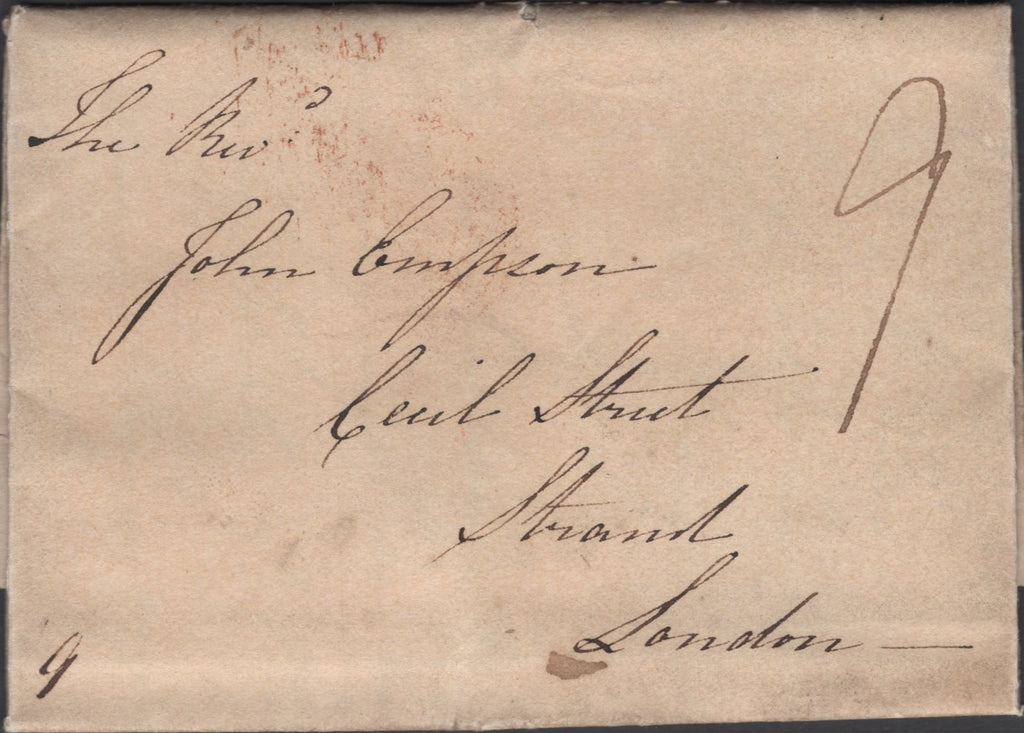 The Revd
9
John Empson
Cecil Street
Strand
London —
9